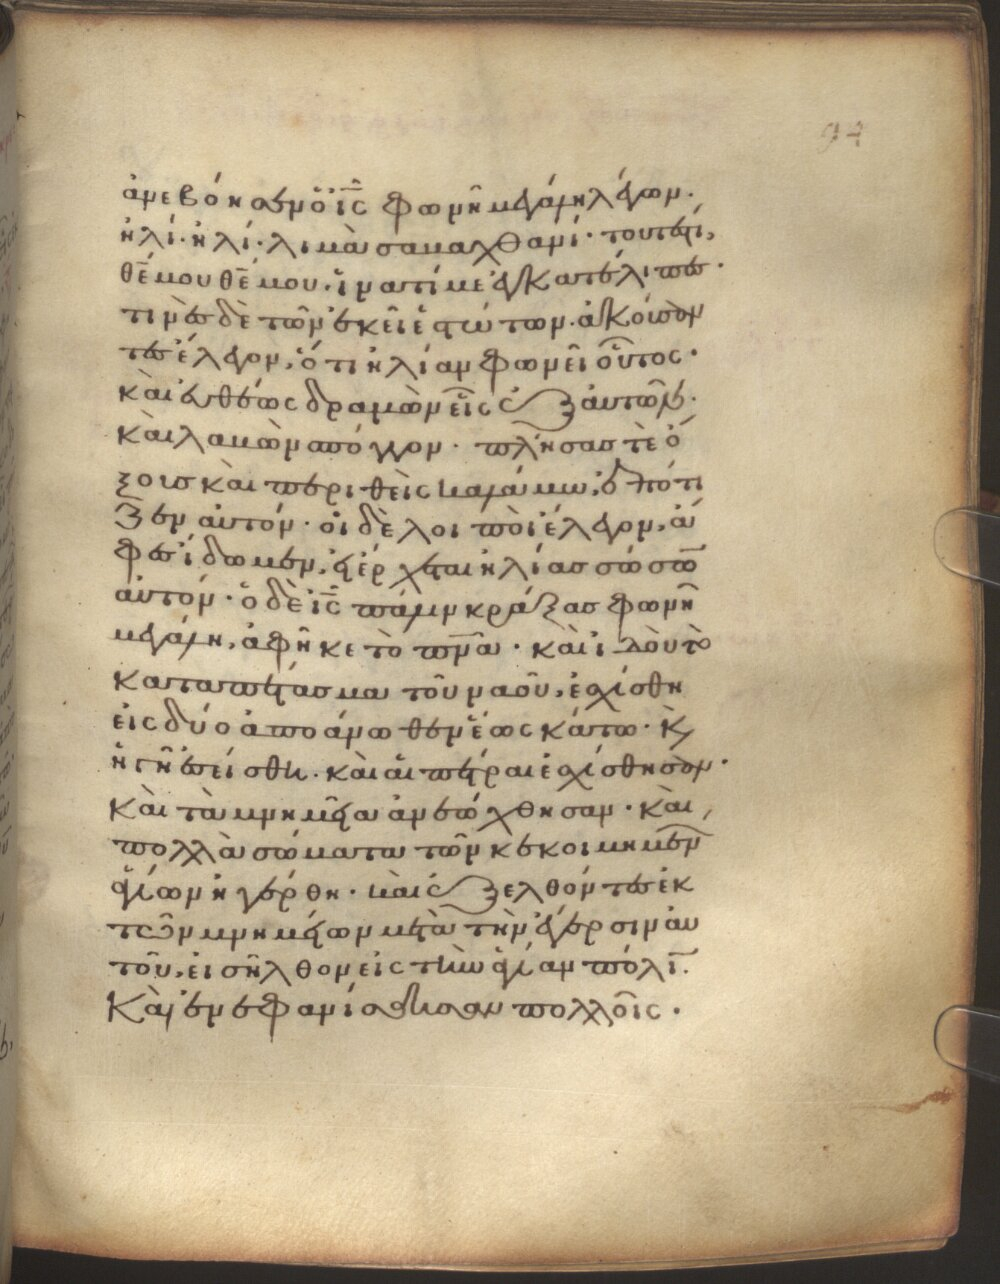 94
ἀνεβόησεν ὁ ις̅ φωνῆ μεγάλη λέγων.
ἠλί· ἠλί· λιμὰ σαβαχθανί· τουτέστι,
θε̅ μου θε̅ μου, ἵνα τί με ἐγκατέλιπες·
τινὲς δὲ τῶν ἐκεῖ ἑστώτων ἀκούσαν
τες ἔλεγον, ὅτι ἠλίαν φωνεῖ οὗτος·
καὶ εὐθέως δραμὼν εἷς ἐξ αὐτῶν·
καὶ λαβὼν σπόγγον· πλήσας τὲ ὄ
ξους καὶ περιθεὶς καλάμω, ἐπότι
ζεν αὐτόν· οἱ δὲ λοιποὶ ἔλεγον, ἄ
φες ἴδωμεν, εἰ ἔρχεται ἠλίας σώσων
αὐτόν· ὁ δὲ ις̅ πάλιν κράξας φωνῆ
μεγάλη, ἀφῆκε τὸ πνα̅· καὶ ἰδοὺ τὸ
καταπέτασμα τοῦ ναοῦ, ἐσχίσθη
εἰς δύο ἀπὸ ἄνωθεν ἕως κάτω· κ̀
ἡ γῆ ἐσείσθη· καὶ αἱ πέτραι ἐσχίσθησαν·
καὶ τὰ μνημεῖα ἀνεώχθησαν· καὶ
πολλὰ σώματα τῶν κεκοιμημένων
ἁγίων ἠγέρθη· καὶ ἐξελθόντες ἐκ
τῶν μνημείων μετὰ τὴν ἔγερσιν αὐ
τοῦ, εἰσῆλθον εἰς τὴν ἁγίαν πόλι̅·
Καὶ ἐνεφανίσθησαν πολλοῖς·